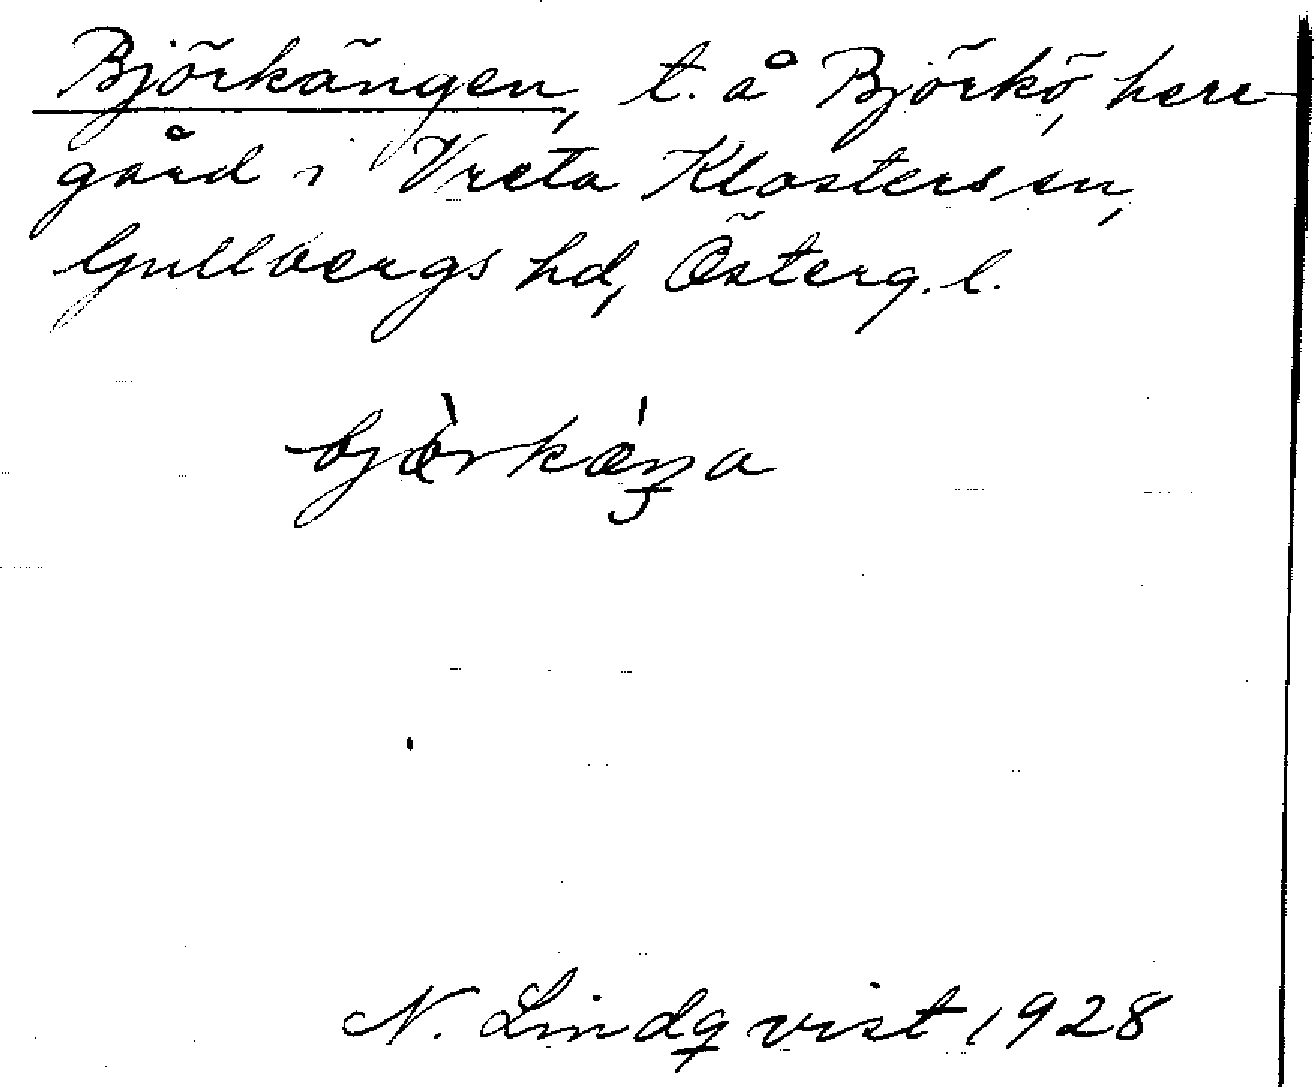 Björkängen, t. å Björkö, herr-
gård i Vreta Klosters sn,
Gullbergs hd, Österg. l.
bjö̀rkǽŋa
N. Lindqvist 1928